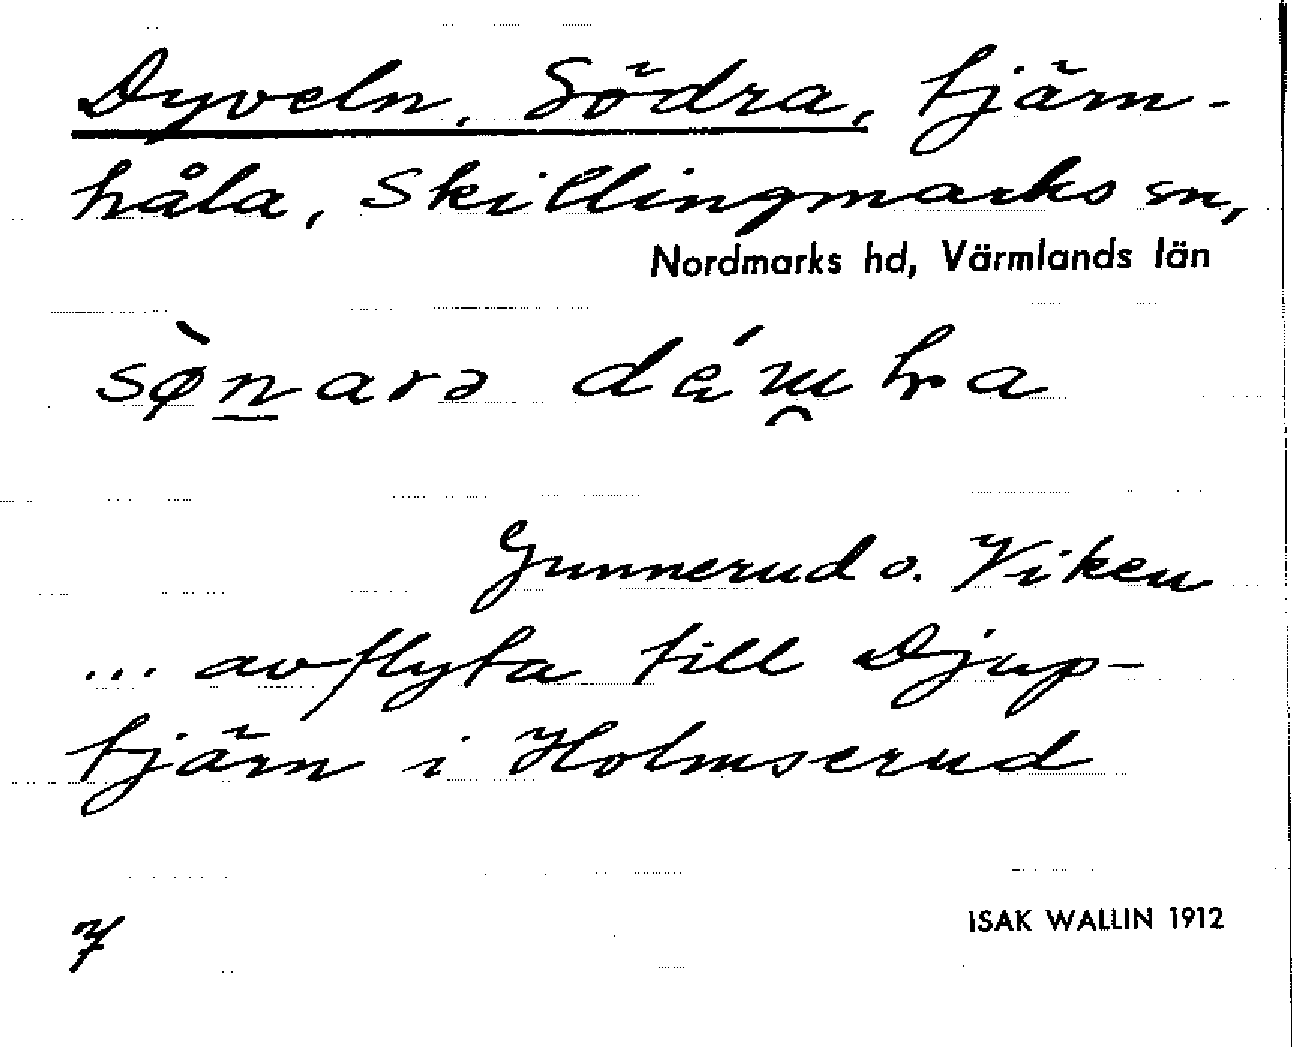 Dyveln, Södra, tjärn-
håla, Skillingmarks sn,
Nordmarks hd, Värmlands län
Gunnerud o. Viken
... avflyta till Djup-
tjärn i Holmserud
7
ISAK WALLIN 1912